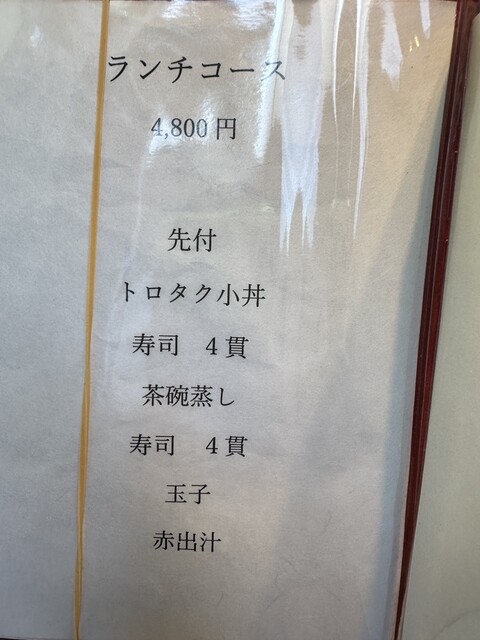 ランチコース
4,800円
先付
トロタク小丼
寿司　4貫
茶碗蒸し
寿司　4貫
玉子
赤出汁